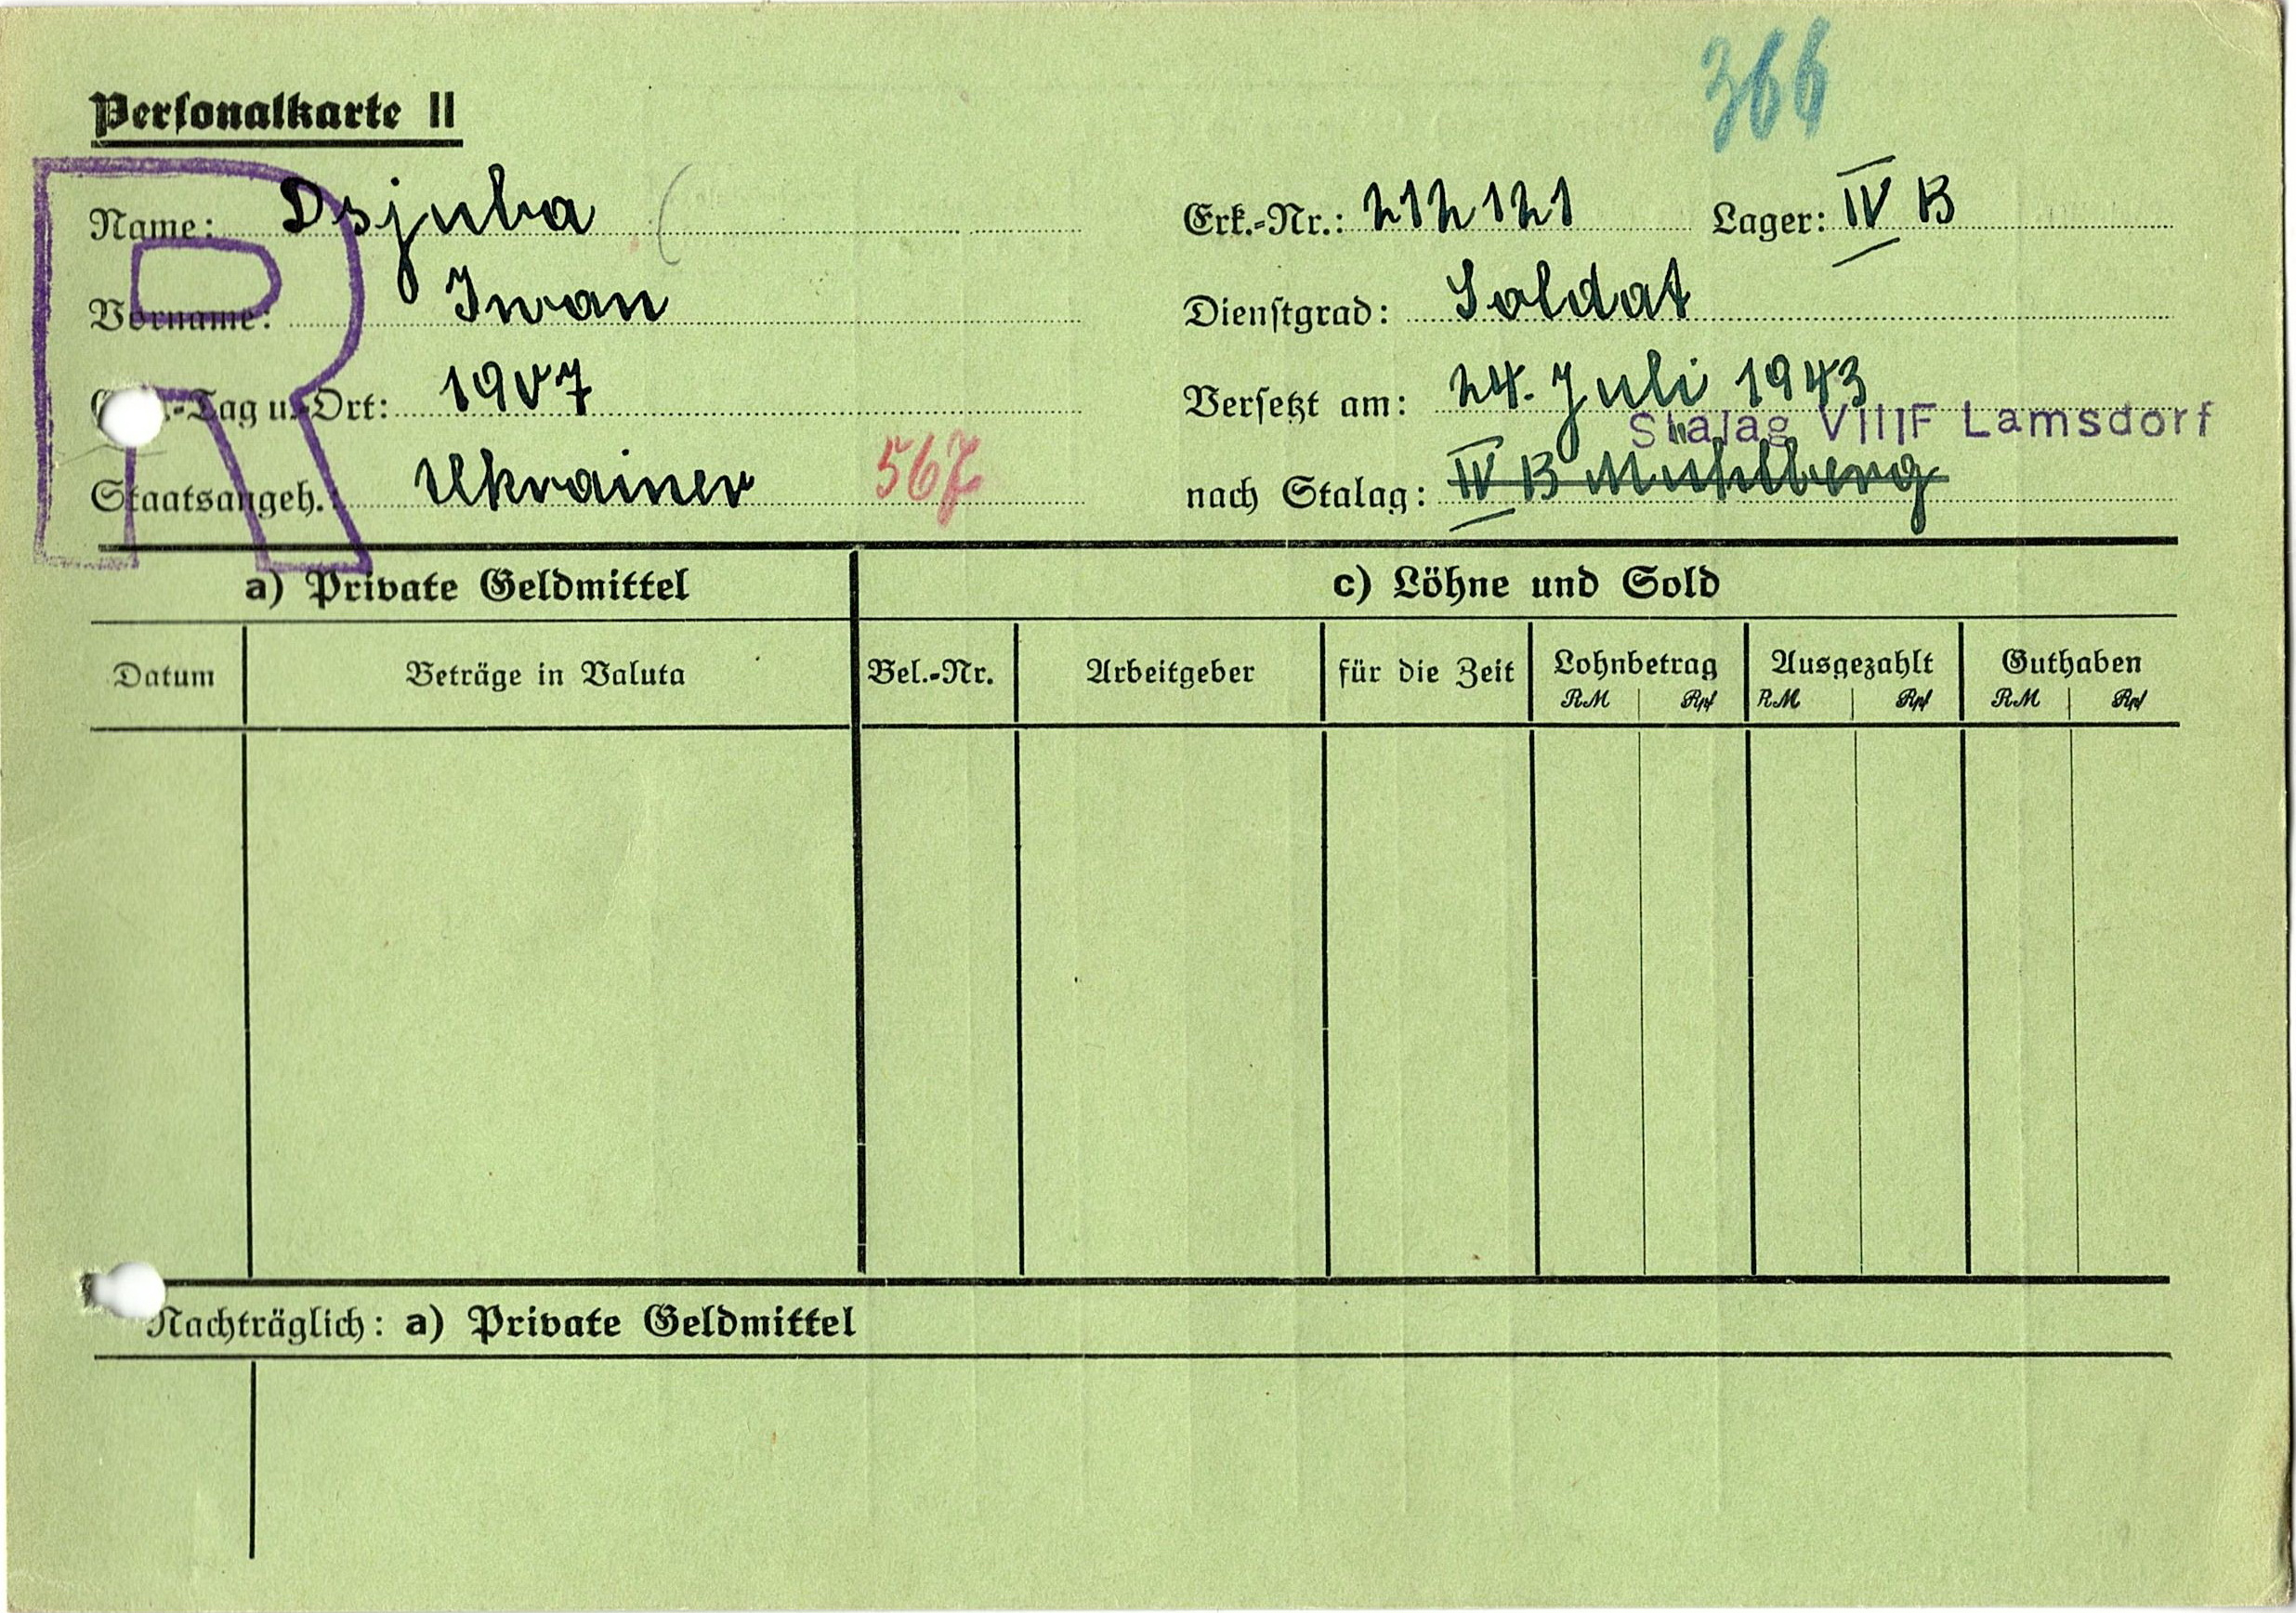 366
Personalkarte II
R
Name: Dsjuba Erk.-Nr.: 212121 Lager: IV B
Vorname: Iwan Dienstgrad: Soldat
-Tag u. Ort: 1907 Versetzt am: 24. Juli 1943
Stalag VIIIF Lamsdorf
Staatsangeh.: Ukrainer 567 nach Stalag: IV B Mühlberg
a) Private Geldmittel c) Löhne und Sold
Datum Beträge in Valuta Bel.-Nr. Arbeitgeber für die Zeit Lohnbetrag Ausgezahlt Guthaben
RM Rpf RM Rpf RM Rpf
Nachträglich: a) Private Geldmittel